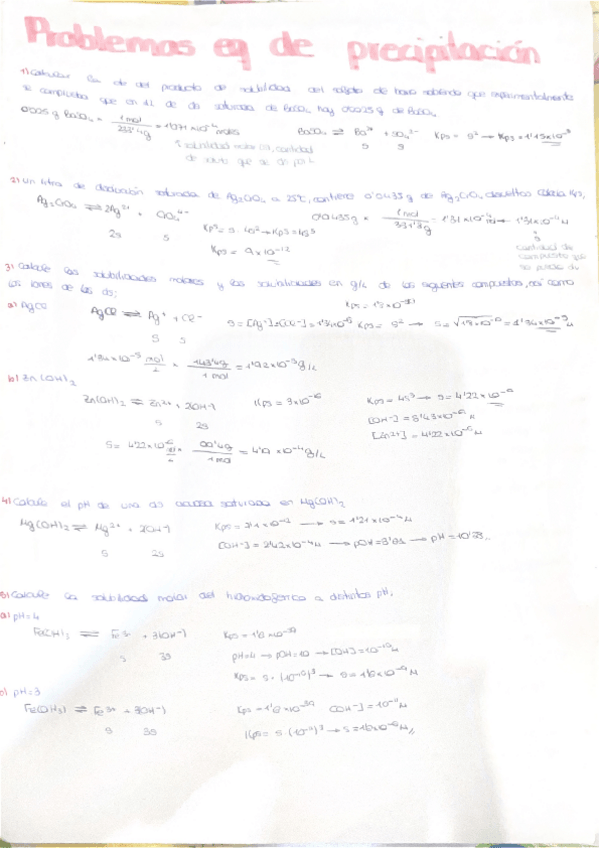 Problemas eq de precipitación
1) Calcular la cte del producto de solubilidad del sulfato de bario sabiendo que experimentalmente
se comprueba que en 1L de ds saturada de BaSO4 hay 0'0025 g de BaSO4
0'0025 g BaSO4 × 1 mol / 233'4g = 1'071 × 10⁻⁵ moles BaSO4 ⇌ Ba²⁺ + SO4²⁻ Kps = s² → Kps = 1'15×10⁻¹⁰
s s
solubilidad molar (s), cantidad
de soluto que se ds por L
2) Un litro de disolución saturada de Ag2CrO4 a 25°C, contiene 0'0435 g de Ag2CrO4 disueltos. Calcula Kps
Ag2CrO4 ⇌ 2Ag⁺ + CrO4²⁻ 0'0435g × 1 mol / 331'7g = 1'31 × 10⁻⁴ mol → 1'31×10⁻⁴ M
2s s Kps = s · 4s² → Kps = 4s³ s
Kps = 9×10⁻¹² cantidad de
compuesto que
se puede ds
3) Calcule las solubilidades molares y las solubilidades en g/L de los siguientes compuestos, así como
los iones de las ds:
a) AgCl AgCl ⇌ Ag⁺ + Cl⁻ Kps = 1'8 × 10⁻¹⁰
s s s = [Ag⁺] = [Cl⁻] Kps = s² → s =
1'34 × 10⁻⁵ mol/L × 143'4g / 1 mol = 1'92 × 10⁻³ g/L
b) Zn(OH)2
Zn(OH)2 ⇌ Zn²⁺ + 2OH⁻ Kps = 3×10⁻¹⁶ Kps = 4s³ → s = 4'22 × 10⁻⁶
s 2s [OH⁻] = 8'43×10⁻⁶ M
[Zn²⁺] = 4'22 × 10⁻⁶ M
s = 4'22 × 10⁻⁶ mol/L × / 1 mol = 4'19 × 10⁻⁴ g/L
4) Calcule el pH de una ds acuosa saturada en Mg(OH)2
Mg(OH)2 ⇌ Mg²⁺ + 2OH⁻ Kps = → s = 1'21 × 10⁻⁴ M
s 2s [OH⁻] = 2'42×10⁻⁴ M → pOH = → pH = 10'38
5) Calcule la solubilidad molar del a distintos pH.
a) pH = 4
Fe(OH)3 ⇌ Fe³⁺ + 3(OH⁻) Kps = 1'6 × 10⁻³⁹
s 3s pH = 4 → pOH = 10 → [OH⁻] = 10⁻¹⁰ M
Kps = s · (10⁻¹⁰)³ → s = 1'6×10⁻⁹ M
b) pH = 3
Fe(OH)3 ⇌ Fe³⁺ + 3(OH⁻) Kps = 1'6 × 10⁻³⁹ [OH⁻] = 10⁻¹¹ M
s 3s Kps = s · (10⁻¹¹)³ → s = 1'6×10⁻⁶ M